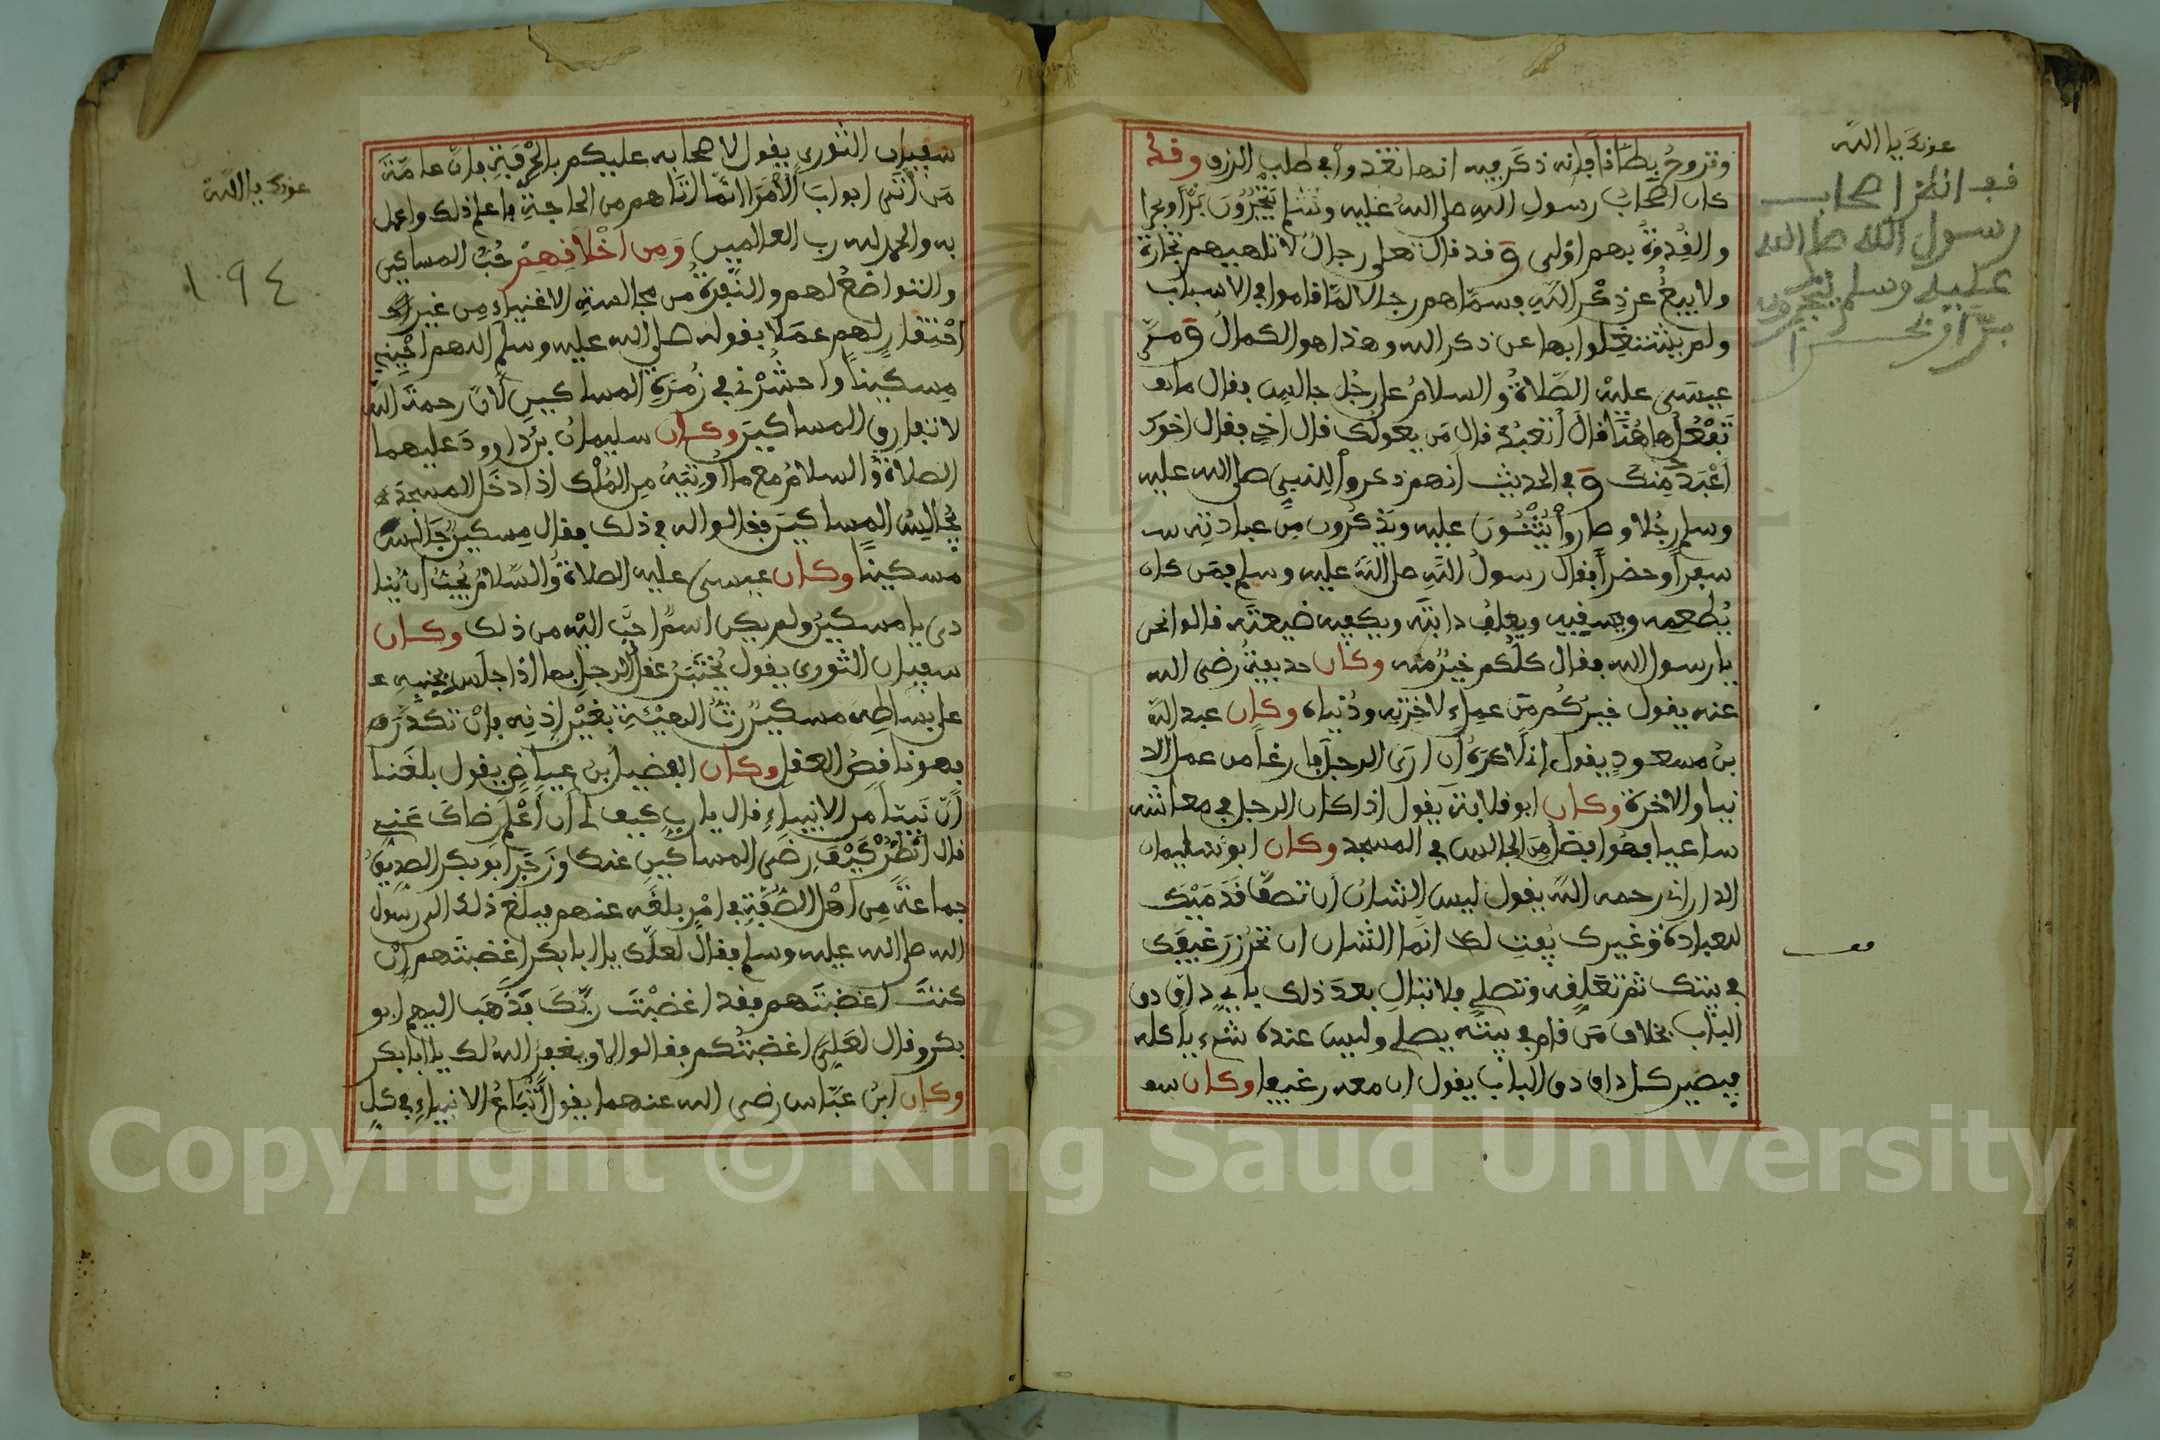 عونك يا الله
قف انظر اصحاب
رسول الله صلى الله
عليه وسلم يتجرون
برا وبحرا
وتروح بطانا فانه ذكر فيه انها تغدوا في طلب الرزق وقد
كان اصحاب رسول الله صلى الله عليه وسلم يتجرون برا وبحرا
والقدوة بهم اولى وقد قال تعلى رجال لا تلهيهم تجارة
ولا بيع عن ذكر الله فسماهم رجالا لما قاموا في الاسباب
ولم يشتغلوا بها عن ذكر الله وهذا هو الكمال ومر
عيسى عليه الصلاة والسلام على رجل جالس فقال ما
تفعل هاهنا قال أتعبد قال من يعولك قال اخي فقال اخوك
اعبد منك وفي الحديث أنهم ذكروا للنبي صلى الله عليه
وسلم رجلا وصاروا يثنون عليه ويذكرون من عبادته
سفرا وحضرا فقال رسول الله صلى الله عليه وسلم فمن كان
يطعمه ويسقيه ويعلف دابته ويكفيه ضيعته قالوا نحن
يا رسول الله فقال كلكم خير منه وكان حذيفة رضى الله
عنه يقول خيركم من عمل لاخرته ودنياه وكان عبد الله
بن مسعود يقول إني لاكره أن ارى الرجل فارغا من عمل الد
نيا والاخرة وكان ابو قلابة يقول اذا كان الرجل في معاشه
ساعيا فهو افضل من الجالس في المسجد وكان ابو سليمان
الداراني رحمه الله يقول ليس الشان أن تصف قدميك
للعبادة وغيرك يفت لك انما الشان ان تحرز رغيفك
في بيتك ثم تغلقه وتصلي ولا تبال بعد ذلك باي داق دق
الباب بخلاف من قام في بيته يصلي وليس عنده شىء ياكله
فيصير كل داق دق الباب يقول ان معه رغيفا وكان
قف
عونك يا الله
١٠٩٤
سفيان الثوري يقول لاصحابه عليكم بالحرفة فان عامة
من أتى ابواب الأمراء انما اتاهم من الحاجة فاعلم ذلك واعمل
به والحمد لله رب العالمين ومن اخلاقهم حب المساكين
والتواضع لهم والنفرة من مجالسة الاغنياء من غير
احتقار لهم عملا بقوله صلى الله عليه وسلم اللهم احيني
مسكينا واحشرني في زمرة المساكين لان رحمة الله
لا تفارق المساكين وكان سليمان بن داوود عليهما
الصلاة والسلام مع ما أوتيه من الملك اذا دخل المسجد
يجالس المساكين فقالوا له في ذلك فقال مسكين جالس
مسكينا وكان عيسى عليه الصلاة والسلام يحب ان ينا
دى يا مسكين ولم يكن اسم احب اليه من ذلك وكان
سفيان الثوري يقول يختبر عقل الرجل بما اذا جلس بجنبه
على بساطه مسكين رث الهيئة بغير اذنه فان تكدر
فهو ناقص العقل وكان الفضيل بن عياض يقول بلغنا
أن نبيا من الانبياء قال يا رب كيف لي أن أعلم رضاك عني
قال انظر كيف رضى المساكين عنك وزجر ابو بكر الصديق
جماعة من اهل الصفة في امر بلغه عنهم فبلغ ذلك الى رسول
الله صلى الله عليه وسلم فقال لعلك يا ابا بكر اغضبتهم إن
كنت اغضبتهم فقد اغضبت ربك فذهب اليهم ابو
بكر وقال لعلي اغضبتكم فقالوا لا ويغفر الله لك يا ابا بكر
وكان ابن عباس رضى الله عنهما يقول أتباع الانبياء في كل
Copyright © King Saud University